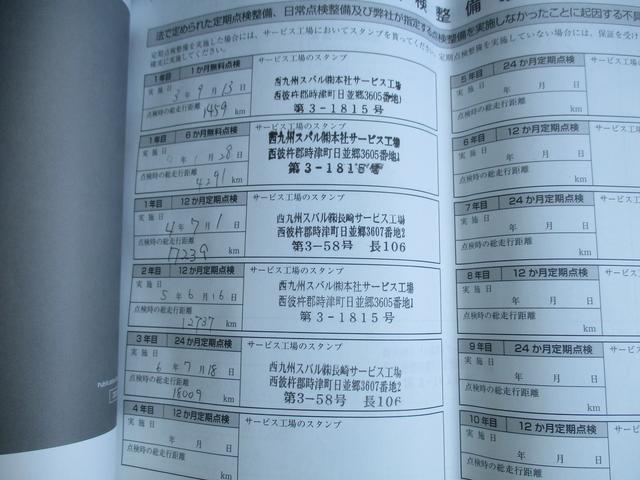 検 整 備
法で定められた定期点検整備、日常点検整備及び弊社が指定する点検整備を実施しなかったことに起因する不
定期点検整備を実施した場合には、サービス工場においてスタンプを貰ってください。定期点検整備を実施していない場合は、保証を受け
確実に実施してください。
1年目 1か月無料点検
実施日 3年9月13日
点検時の総走行距離
1459 km
サービス工場のスタンプ
西九州スバル㈱本社サービス工場
西彼杵郡時津町日並郷3605番地1
第3-1815号
1年目 6か月無料点検
実施日 年1月28日
点検時の総走行距離
4291 km
サービス工場のスタンプ
西九州スバル㈱本社サービス工場
西彼杵郡時津町日並郷3605番地1
第3-1815号
1年目 12か月定期点検
実施日 4年7月1日
点検時の総走行距離
7239 km
サービス工場のスタンプ
西九州スバル㈱長崎サービス工場
西彼杵郡時津町日並郷3607番地2
第3-58号 長106
2年目 12か月定期点検
実施日 5年6月16日
点検時の総走行距離
12737 km
サービス工場のスタンプ
西九州スバル㈱本社サービス工場
西彼杵郡時津町日並郷3605番地1
第3-1815号
3年目 24か月定期点検
実施日 6年7月18日
点検時の総走行距離
18009 km
サービス工場のスタンプ
西九州スバル㈱長崎サービス工場
西彼杵郡時津町日並郷3607番地2
第3-58号 長106
4年目 12か月定期点検
実施日 年 月 日
点検時の総走行距離
km
サービス工場のスタンプ
5年目 24か月定期点検
実施日 年 月 日
点検時の総走行距離
km
6年目 12か月定期点検
実施日 年 月 日
点検時の総走行距離
km
7年目 24か月定期点検
実施日 年 月 日
点検時の総走行距離
km
8年目 12か月定期点検
実施日 年 月 日
点検時の総走行距離
km
9年目 24か月定期点検
実施日 年 月 日
点検時の総走行距離
km
10年目 12か月定期点検
実施日 年 月 日
点検時の総走行距離
km